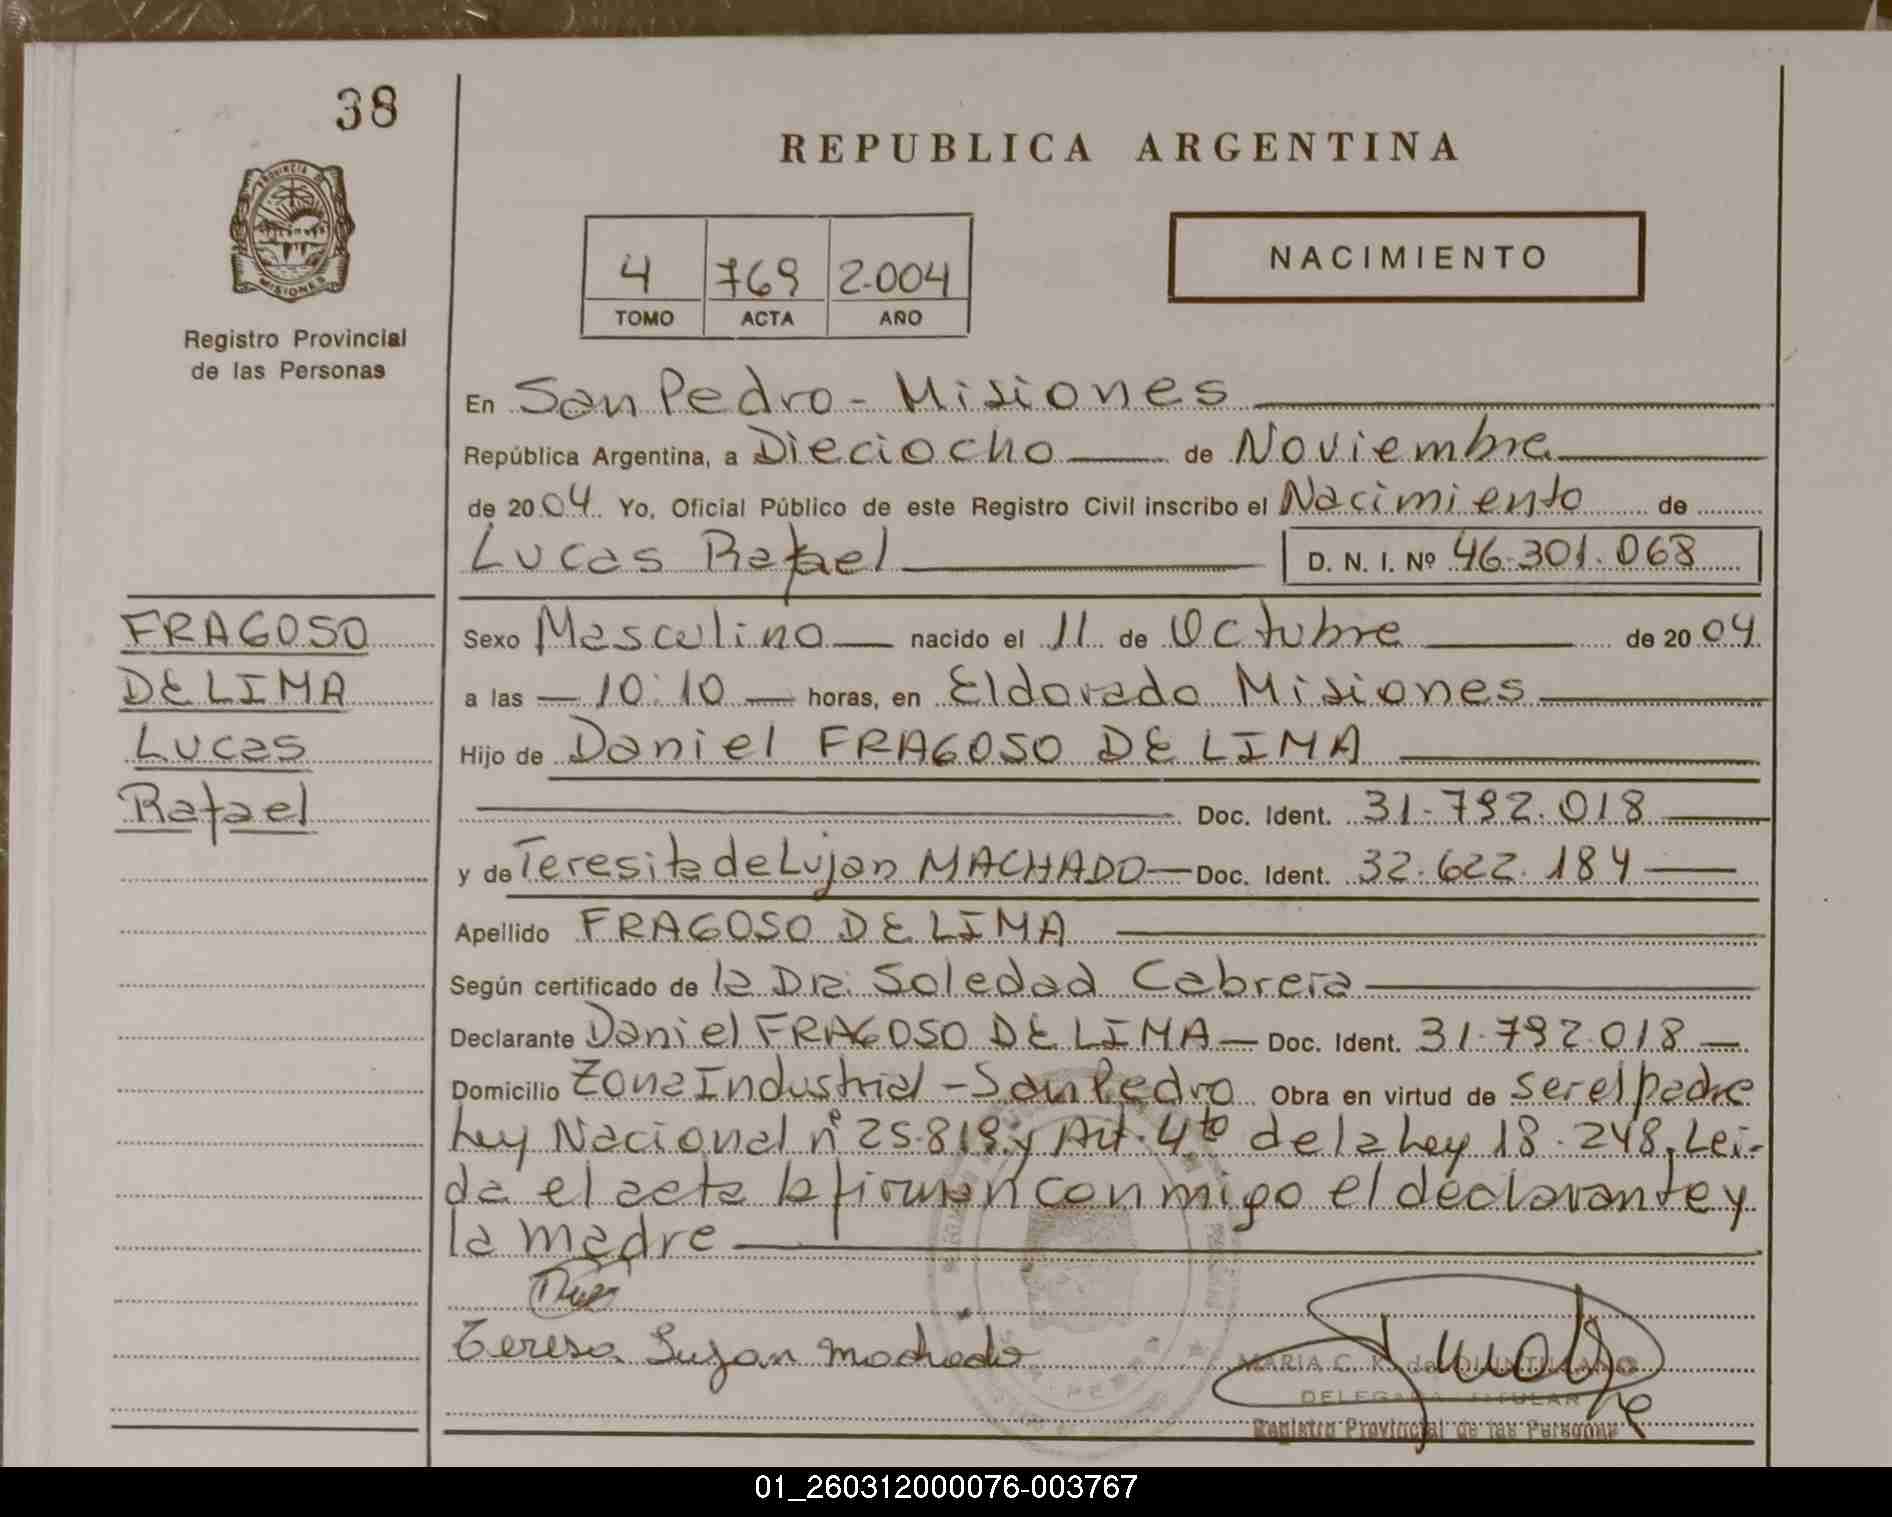 38
PROVINCIA DE
MISIONES
Registro Provincial
de las Personas
REPUBLICA ARGENTINA
4 769 2.004
TOMO ACTA AÑO
NACIMIENTO
En San Pedro - Misiones
República Argentina, a Dieciocho de Noviembre
de 2004. Yo, Oficial Público de este Registro Civil inscribo el Nacimiento de
Lucas Rafael D. N. I. Nº 46.301.068
FRAGOSO
DE LIMA
Lucas
Rafael
Sexo Masculino nacido el 11 de Octubre de 2004.
a las — 10:10 — horas, en Eldorado Misiones
Hijo de Daniel FRAGOSO DE LIMA
Doc. Ident. 31.792.018
y de Teresita de Lujan MACHADO — Doc. Ident. 32.622.184
Apellido FRAGOSO DE LIMA
Según certificado de la Dra. Soledad Cabrera
Declarante Daniel FRAGOSO DE LIMA — Doc. Ident. 31.792.018 —
Domicilio Zona Industrial - San Pedro Obra en virtud de ser el padre
Ley Nacional nº 25.819 y Art. 4to de la Ley 18.248, Lei-
da el acta la firman conmigo el declarante y
la madre
Teresa Lujan Machado
MARIA C. K. de QUINTILIANO
DELEGADA TITULAR
Registro Provincial de las Personas
01_260312000076-003767